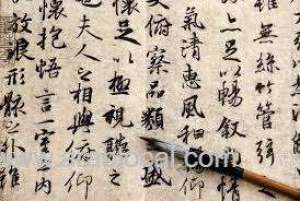 雖無絲竹管弦之
足以暢敘幽情
氣清惠風和暢仰
俯察品類之盛
懷足以極視聽之
也夫人之相與俯仰
懷抱悟言一室之內
放浪形骸之外雖